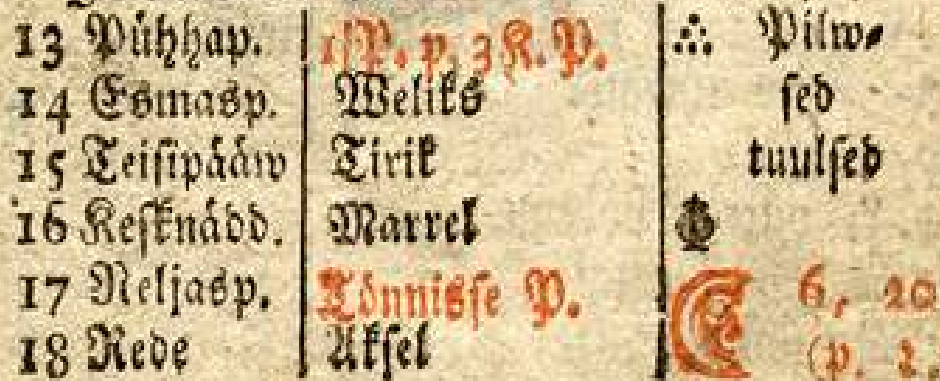 13 Pühhap. 1 P. p. 3 K. P. ∴ Pilw⸗
14 Esmasp. Weliks sed
15 Teisipääw Tirik tuulsed
16 Kesknädd. Marrel
17 Neljasp. Tönnisse P. 6, 20
18 Rede Aksel (p. 2,